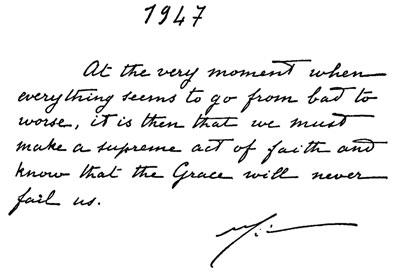 1947
At the very moment when
everything seems to go from bad to
worse, it is then that we must
make a supreme act of faith and
know that the Grace will never
fail us.